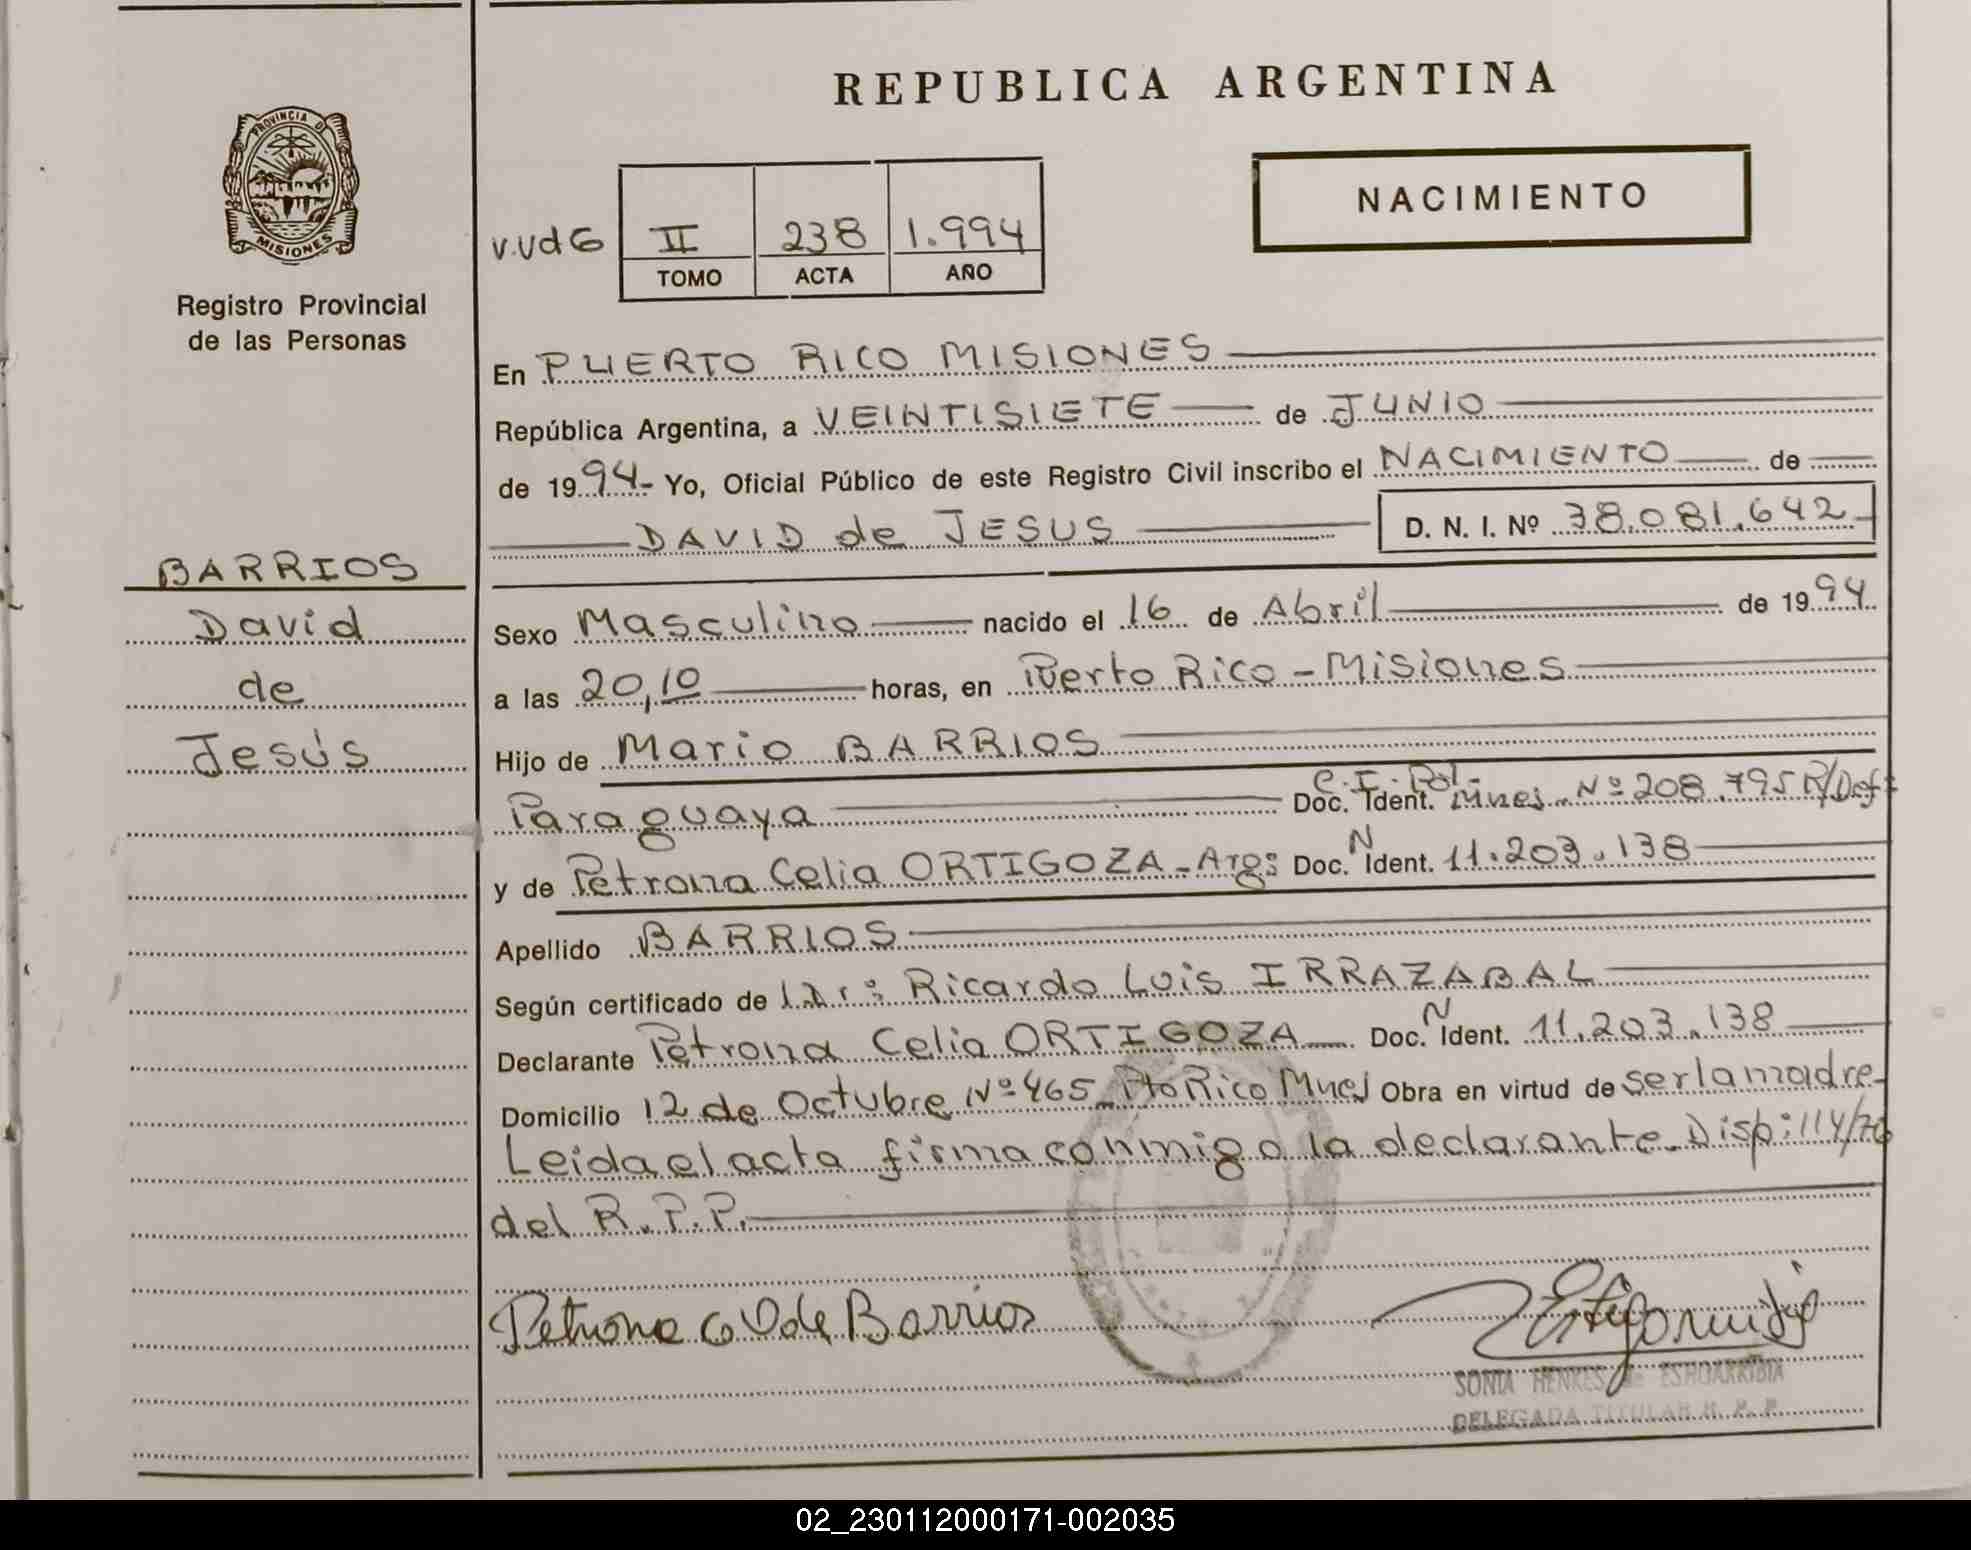 REPUBLICA ARGENTINA
PROVINCIA DE
MISIONES
Registro Provincial
de las Personas
NACIMIENTO
II 238 1.994
TOMO ACTA AÑO
En PUERTO RICO MISIONES
República Argentina, a VEINTISIETE de JUNIO
de 1994- Yo, Oficial Público de este Registro Civil inscribo el NACIMIENTO de
DAVID de JESUS D. N. I. Nº 38.081.642
BARRIOS
David
de
Jesús
Sexo Masculino nacido el 16 de Abril de 1994
a las 20,10 horas, en Puerto Rico - Misiones
Hijo de Mario BARRIOS
C.I. Pol.
Paraguaya Doc. Ident. Mnes. Nº 208.795 R/Def:
N
y de Petrona Celia ORTIGOZA - Arg: Doc. Ident. 11.203.138
Apellido BARRIOS
Según certificado de Dr: Ricardo Luis IRRAZABAL
N
Declarante Petrona Celia ORTIGOZA Doc. Ident. 11.203.138
Domicilio 12 de Octubre Nº 465 Pto Rico Mnes Obra en virtud de ser la madre-
Leida el acta firma conmigo la declarante. Disp: 114/70
del R.P.P.
Petrona C O de Barrios
SONIA HENKES de ESHOARRIBIA
DELEGADA TITULAR R. P. P.
02_230112000171-002035